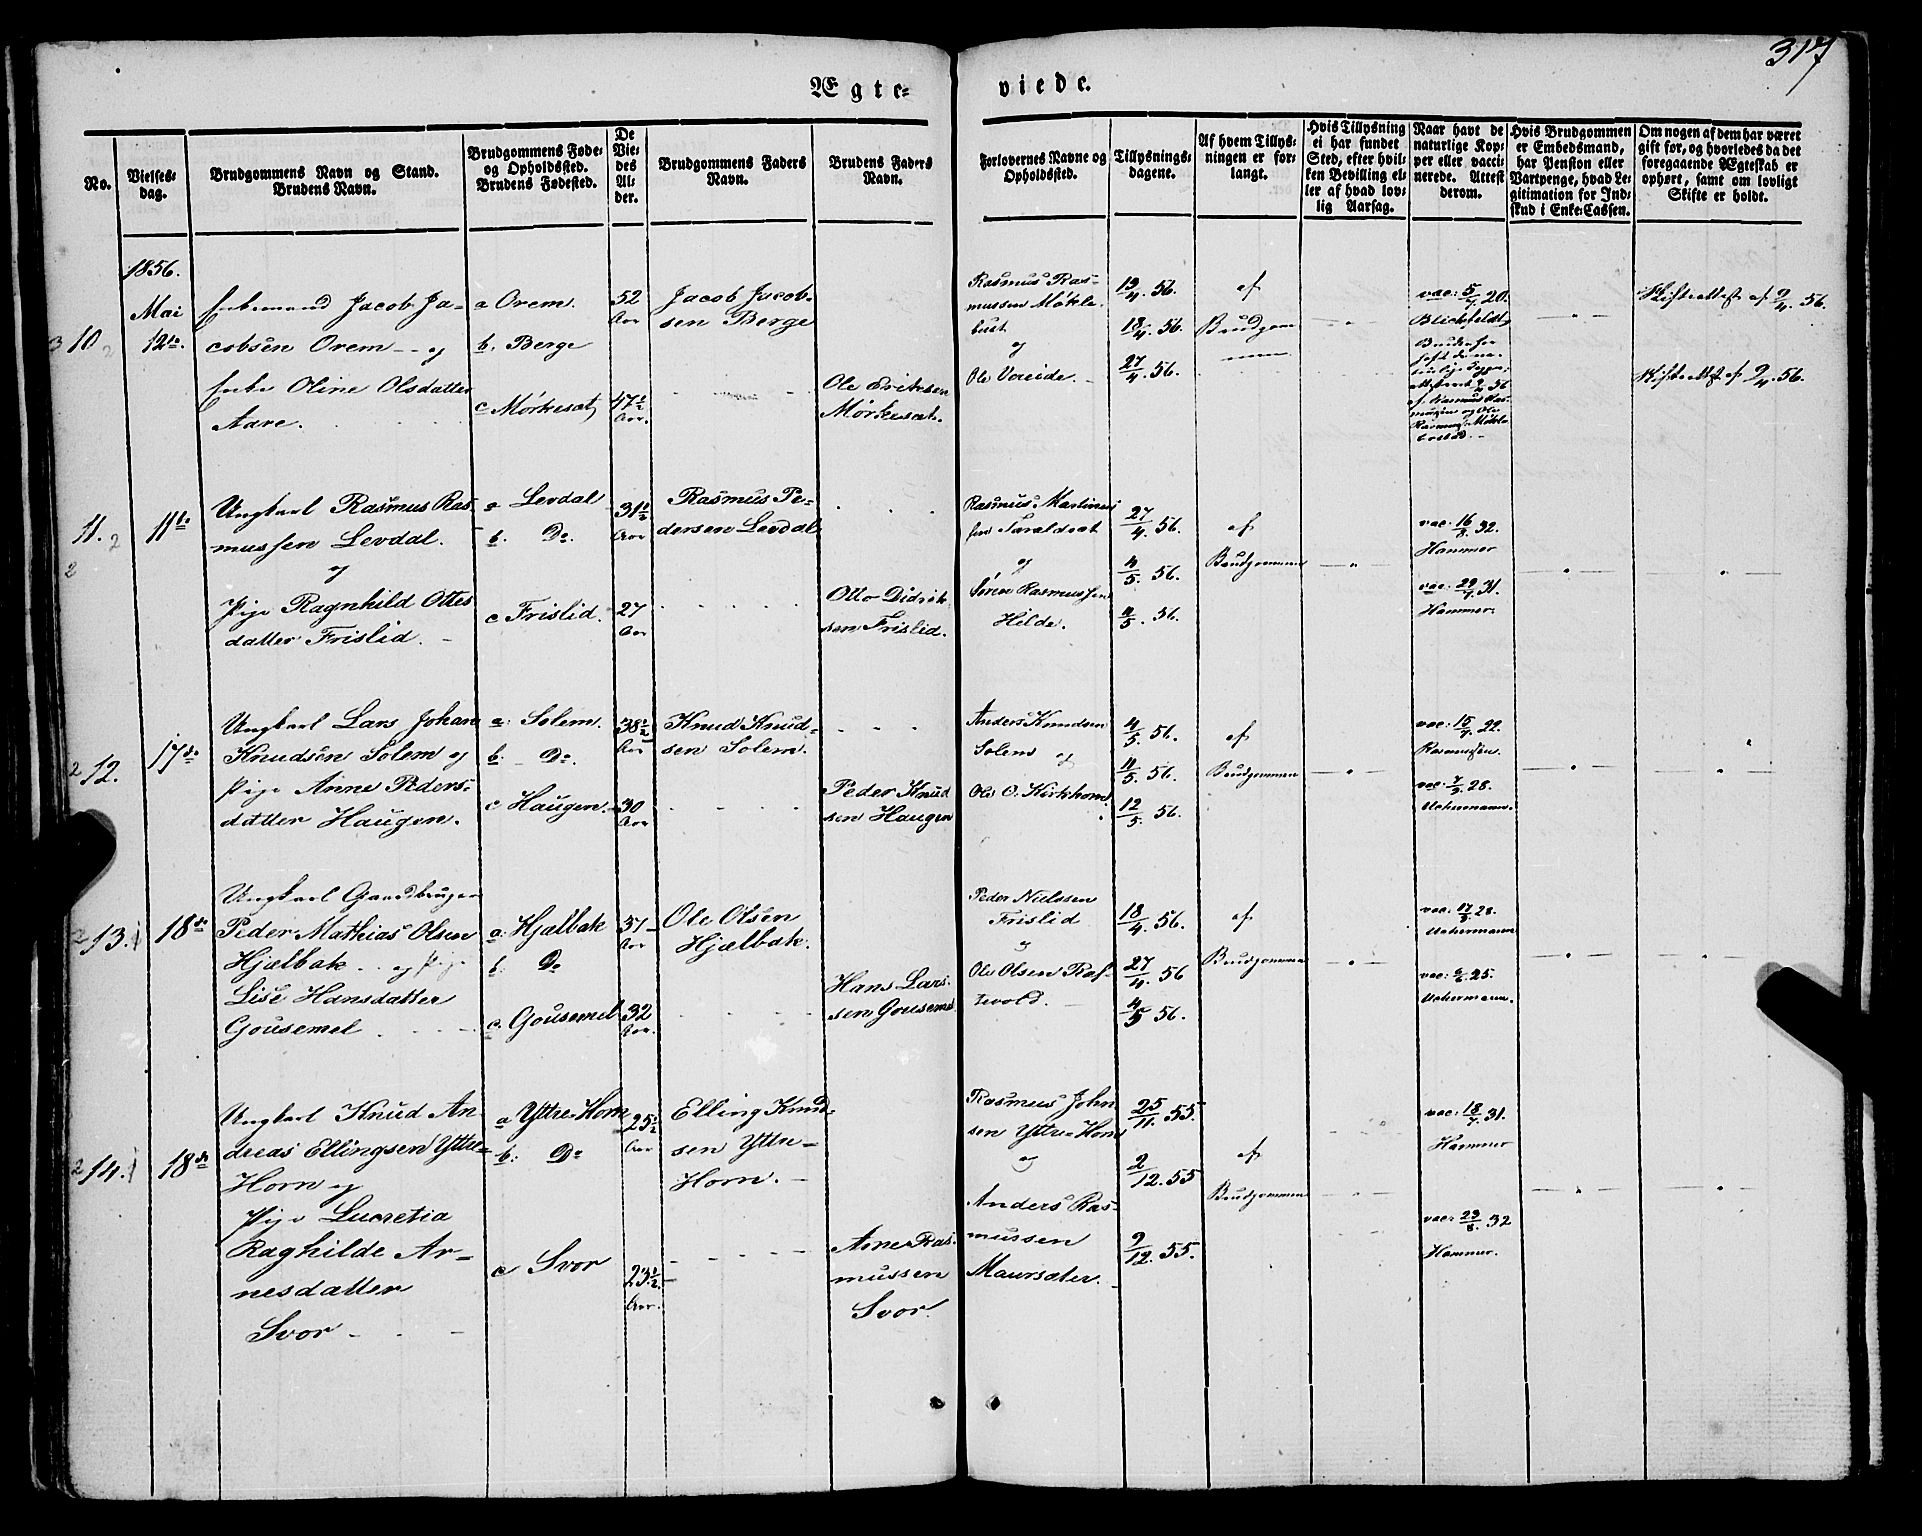 317
Ægte-
viede.
No.
Vielses-
dag.
Brudgommens Navn og Stand.
Brudens Navn.
Brudgommens Føde-
og Opholdssted.
Brudens Fødested.
De
Vie-
des
Al-
der.
Brudgommens Faders
Navn.
Brudens Faders
Navn.
Forlovernes Navne og
Opholdssted.
Tillysnings-
dagene.
Af hvem Tillys-
ningen er for-
langt.
Hvis Tillysning
ei har fundet
Sted, efter hvil-
ken Bevilling el-
ler af hvad lov-
lig Aarsag.
Naar havt de
naturlige Kop-
per eller vacci-
nerede. Attest
derom.
Hvis Brudgommen
er Embedsmand,
har Pension eller
Vartpenge, hvad Le-
gitimation for Ind-
skud i Enke-Cassen.
Om nogen af dem har været
gift før, og hvorledes da det
foregaaende Ægteskab er
ophørt, samt om lovligt
Skifte er holdt.
1856.
Mai
10
12te.
Enkemand Jacob Ja-
cobsen Orem og
Enke Oline Olsdatter
Aare.
a Orem.
b. Berge
c Mørkesæt
52
Aar
47½
Aar.
Jacob Jacob-
sen Berge
Ole Eriksen
Mørkesæt.
Rasmus Ras-
mussen Møkle-
bust
og
Ole Voreide.
13/4. 56.
18/4. 56.
27/4. 56.
af
Brudgom
vac: 5/7. 20.
Blichfeldt,
Skifteattest af 9/4. 56.
Skifteattest af 9/4. 56.
11.
11te
Ungkarl Rasmus Ras-
mussen Levdal.
og
Pige Ragnhild Ottes
datter Frislid.
a Levdal
b. Do.
c Frislid.
31½
Aar
27
Aar
Rasmus Pe-
dersen Levdal
Otto Didrik
sen Frislid.
Rasmus Martinus
sen Taraldset
og
Søren Rasmussen
Hilde.
27/4. 56.
4/5. 56.
11/5. 56.
af
Brudgommen
vac: 16/8. 32.
Hammer
vac: 29/7. 31.
Hammer.
12.
17de
Ungkarl Lars Johan
Knudsen Solem og
Pige Anne Peders-
datter Haugen.
a: Solem.
b. Do.
c Haugen.
38½
Aar
30
Aar
Knud Knud-
sen Solem.
Peder Knud
sen Haugen
Anders Knudsen
Solem og
Ole O. Kirkhorn
4/5. 56.
11/5. 56.
12/5. 56.
af
Brudgommen
vac: 15/7. 22.
Rasmussen.
vac: 7/9. 28.
Uchermann.
13.
18de
Ungkarl Gaardbruger
Peder Mathias Olsen
Hjælbak og Pige
Lise Hansdatter
Gousemel.
a: Hjælbak
b. Do
c. Gousemel
37
Aar
32
Aar.
Ole Olsen
Hjælbak.
Hans Lars-
sen Gousemel
Peder Nielssen
Frislid
og
Ole Olsen Raf-
tevold.
18/4. 56.
27/4. 56
4/5 56.
af
Brudgommen
vac: 17/8. 28.
Uchermann
vac: 6/6. 25.
Uchermann.
14.
18de
Ungkarl Knud An
dreas Ellingsen Yttre-
Horn og
Pige Lucretia
Raghilde Ar-
nesdatter
Svor
a Yttre-Horn
b: Do
c Svor
25½
Aar
23½
Aar.
Elling Knud-
sen Yttre-
Horn.
Arne Ras-
mussen
Svor.
Rasmus John
sen Yttre-Horn
og
Anders Ras-
mussen
Maursæter.
25/11. 55.
2/12. 55
9/12. 55.
af
Brudgommen
vac: 18/7. 31.
Hammer
vac: 23/8. 32
Hammer.